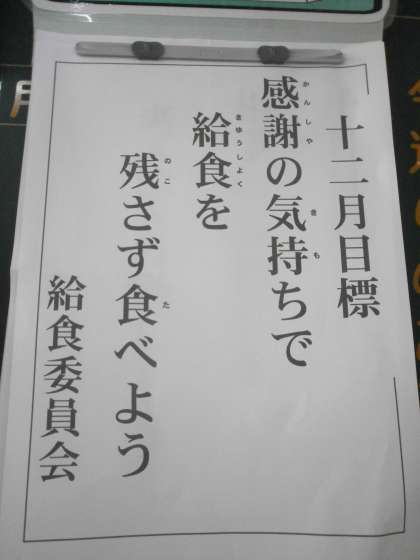 十二月目標
感謝の気持ちで
かんしゃ
きも
給食を
きゅうしょく
残さず食べよう
のこ
た
給食委員会
月